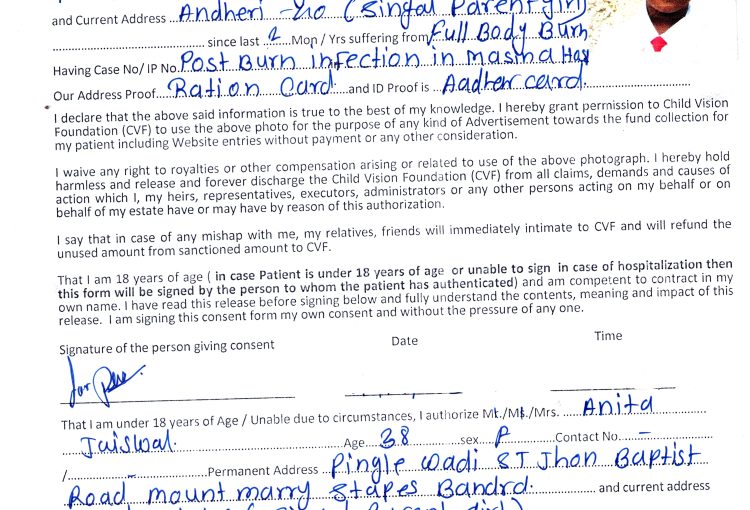 and Current Address Andheri - 40 (Singal Parent girl)
since last 2 Mon / Yrs suffering from Full Body Burn
Having Case No/ IP No. Post Burn infection in masina Has
Our Address Proof Ration Card and ID Proof is Aadhar card.
I declare that the above said information is true to the best of my knowledge. I hereby grant permission to Child Vision
Foundation (CVF) to use the above photo for the purpose of any kind of Advertisement towards the fund collection for
my patient including Website entries without payment or any other consideration.
I waive any right to royalties or other compensation arising or related to use of the above photograph. I hereby hold
harmless and release and forever discharge the Child Vision Foundation (CVF) from all claims, demands and causes of
action which I, my heirs, representatives, executors, administrators or any other persons acting on my behalf or on
behalf of my estate have or may have by reason of this authorization.
I say that in case of any mishap with me, my relatives, friends will immediately intimate to CVF and will refund the
unused amount from sanctioned amount to CVF.
That I am 18 years of age ( in case Patient is under 18 years of age or unable to sign in case of hospitalization then
this form will be signed by the person to whom the patient has authenticated) and am competent to contract in my
own name. I have read this release before signing below and fully understand the contents, meaning and impact of this
release. I am signing this consent form my own consent and without the pressure of any one.
Signature of the person giving consent Date Time
for
That I am under 18 years of Age / Unable due to circumstances, I authorize Mr./Ms./Mrs. Anita
Jaiswal. Age 38 sex F Contact No. -
/ - Permanent Address Pingle wadi ST Jhon Baptist
Road mount marry Stapes Bandrd. and current address